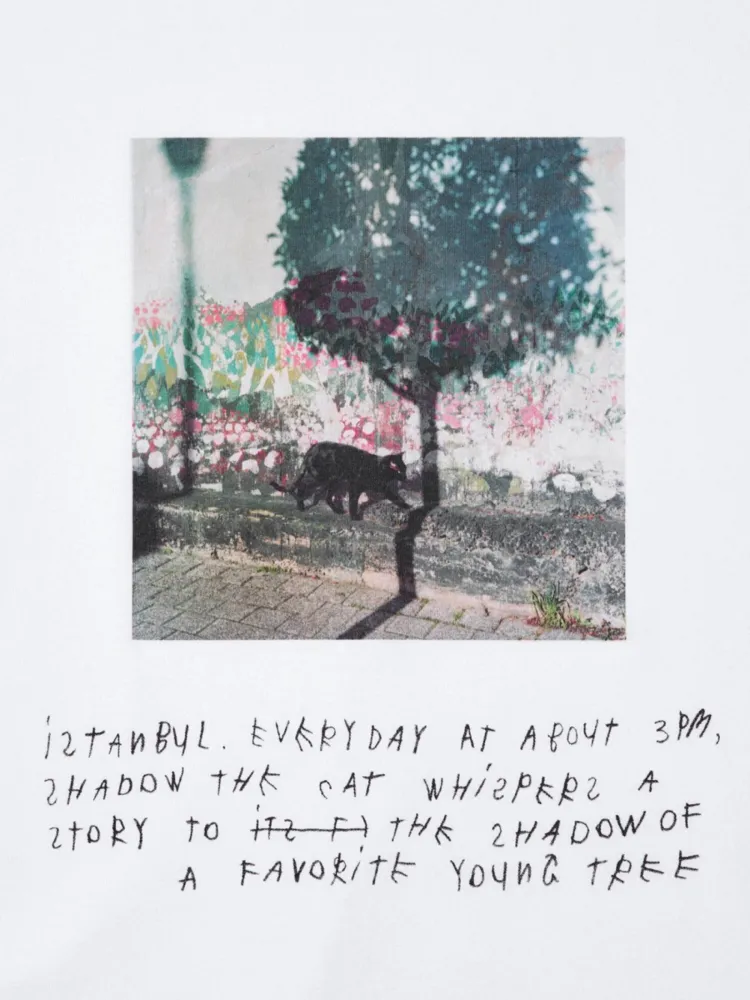 iSTANBUL. EVERYDAY AT ABOUT 3PM,
SHADOW THE CAT WHiSPERS A
STORY TO iTS F THE SHADOW OF
A FAVORiTE YOUNG TREE